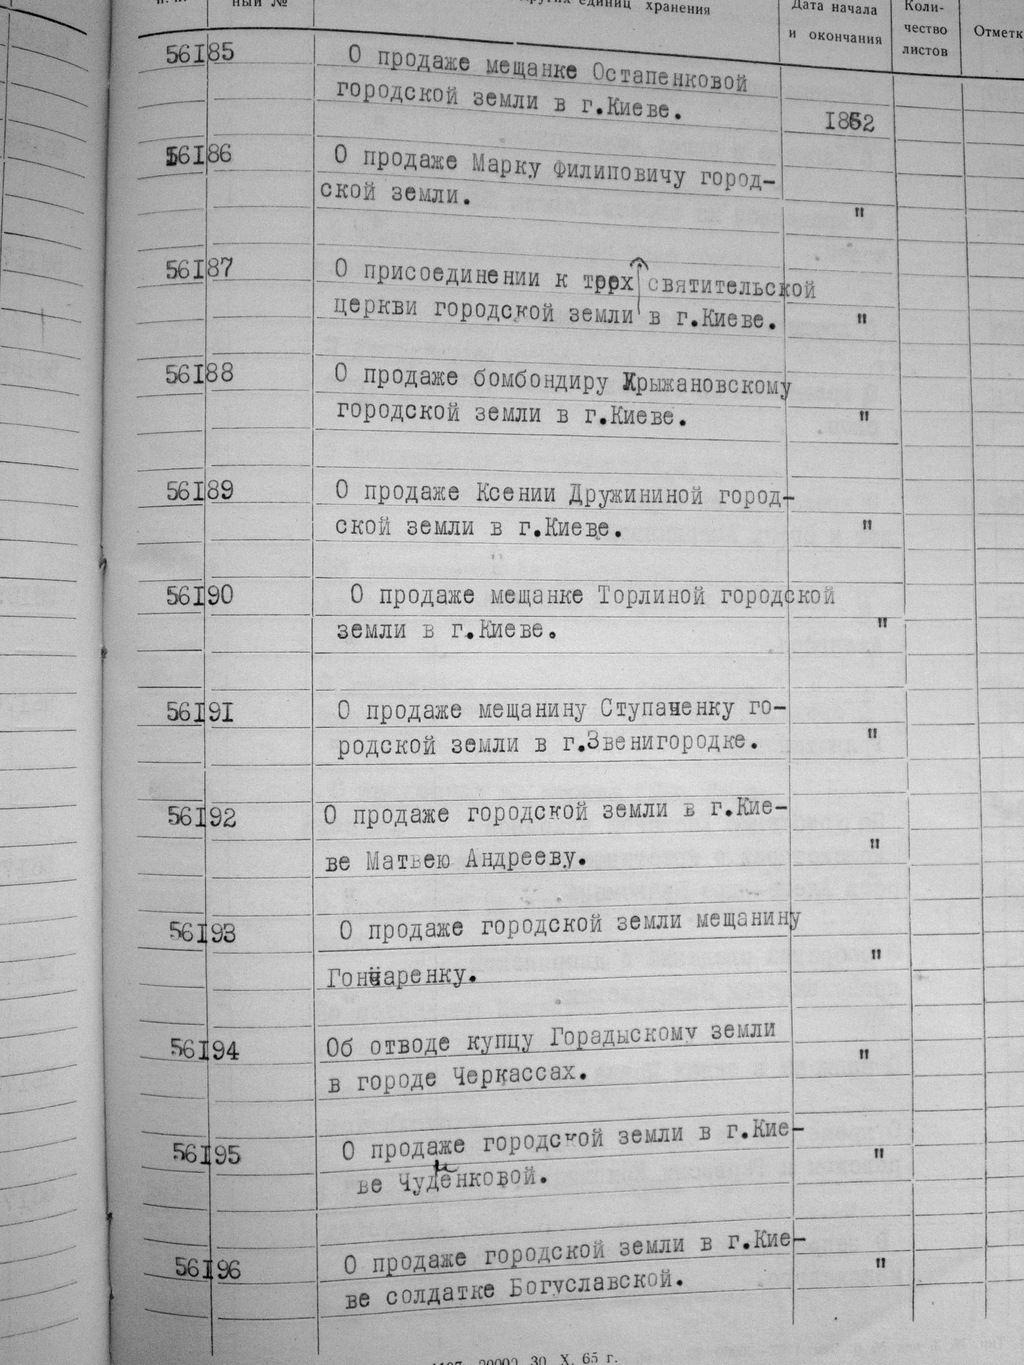 ный №
других единиц хранения
Дата начала
и окончания
Коли-
чество
листов
Отметк
56185 О продаже мещанке Остапенковой
городской земли в г.Киеве.
1862
56186 О продаже Марку Филиповичу город-
ской земли. "
56187 О присоединении к трех святительской
церкви городской земли в г.Киеве. "
56188 О продаже бомбондиру Крыжановскому
городской земли в г.Киеве. "
56189 О продаже Ксении Дружининой город-
ской земли в г.Киеве. "
56190 О продаже мещанке Торлиной городской
земли в г.Киеве. "
56191 О продаже мещанину Ступаченку го-
родской земли в г.Звенигородке. "
56192 О продаже городской земли в г.Кие-
ве Матвею Андрееву. "
56193 О продаже городской земли мещанину
Гончаренку. "
56194 Об отводе купцу Горадыскому земли
в городе Черкассах. "
56195 О продаже городской земли в г.Кие-
ве Чуденковой. "
56196 О продаже городской земли в г.Кие-
ве солдатке Богуславской. "
20000 30. X. 65 г.